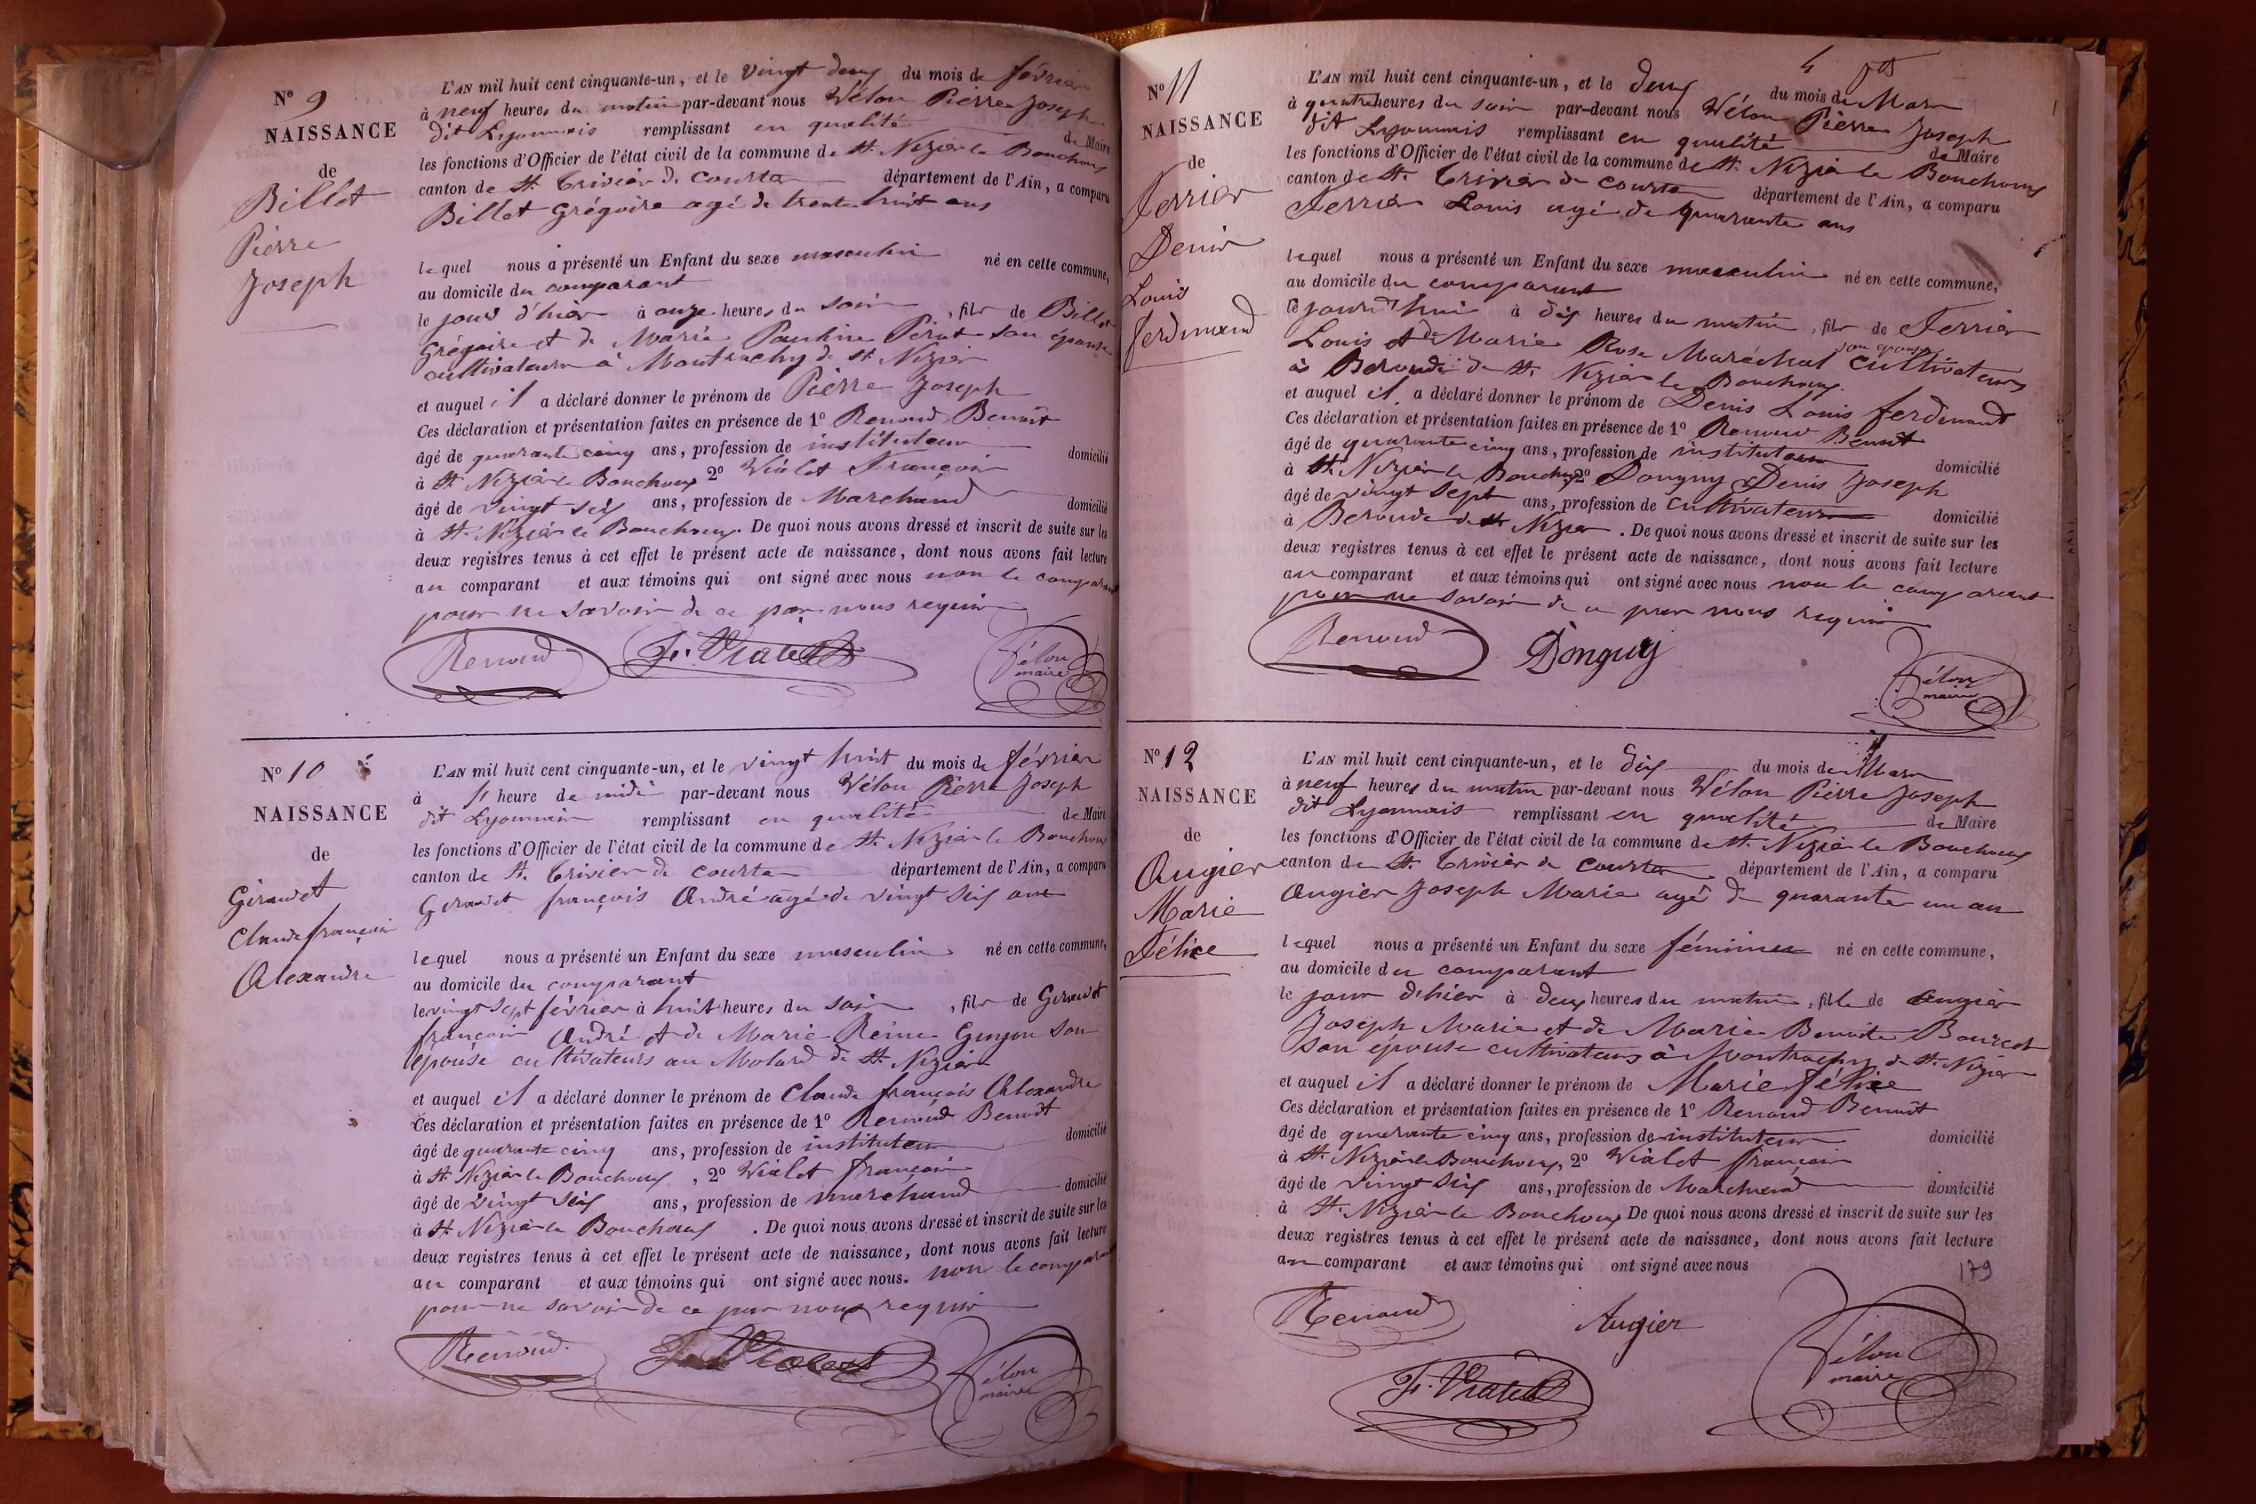 N° 9
NAISSANCE
de
Billet
Pierre
Joseph
L'AN mil huit cent cinquante-un, et le vingt deux du mois de février
à neuf heures du matin par-devant nous Vélon Pierre Joseph
dit Lyonnais remplissant en qualité de Maire
les fonctions d'Officier de l'état civil de la commune de St. Nizier le Bouchoux
canton de St. Trivier de Courte département de l'Ain, a comparu
Billet Grégoire agé de trente huit ans
lequel nous a présenté un Enfant du sexe masculin né en cette commune,
au domicile du comparant
le jour d'hier à onze heures du soir, fils de Billet
Grégoire et de Marie Pauline son épouse
cultivateurs à Montrachy de St Nizier
et auquel il a déclaré donner le prénom de Pierre Joseph
Ces déclaration et présentation faites en présence de 1° Renoud Benoit
âgé de quarante cinq ans, profession de instituteur domicilié
à St. Nizier le Bouchoux 2° Vialet François
âgé de vingt six ans, profession de Marchand domicilié
à St. Nizier le Bouchoux. De quoi nous avons dressé et inscrit de suite sur les
deux registres tenus à cet effet le présent acte de naissance, dont nous avons fait lecture
au comparant et aux témoins qui ont signé avec nous non le comparant
pour ne savoir de ce par nous requis
Renoud F. Vialet Vélon maire
N° 10
NAISSANCE
de
Giraudet
Claude françois
Alexandre
L'AN mil huit cent cinquante-un, et le vingt huit du mois de février
à heure de midi par-devant nous Vélon Pierre Joseph
dit Lyonnais remplissant en qualité de Maire
les fonctions d'Officier de l'état civil de la commune de St. Nizier le Bouchoux
canton de St. Trivier de Courte département de l'Ain, a comparu
Giraudet françois André agé de vingt six ans
lequel nous a présenté un Enfant du sexe masculin né en cette commune,
au domicile du comparant
le vingt sept février à huit heures du soir, fils de Giraudet
françois André et de Marie Reine Guyon son
épouse cultivateurs au Molard de St. Nizier
et auquel il a déclaré donner le prénom de Claude françois Alexandre
Ces déclaration et présentation faites en présence de 1° Renoud Benoit
âgé de quarante cinq ans, profession de instituteur domicilié
à St. Nizier le Bouchoux, 2° Vialet françois
âgé de vingt six ans, profession de marchand domicilié
à St. Nizier le Bouchoux. De quoi nous avons dressé et inscrit de suite sur les
deux registres tenus à cet effet le présent acte de naissance, dont nous avons fait lecture
au comparant et aux témoins qui ont signé avec nous. non le comparant
pour ne savoir de ce par nous requis
Renoud Vialet Vélon maire
4
N° 11
NAISSANCE
de
Ferrier
Denis
Louis
ferdinand
L'AN mil huit cent cinquante-un, et le deux du mois de Mars
à quatre heures du soir par-devant nous Vélon Pierre Joseph
dit Lyonnais remplissant en qualité de Maire
les fonctions d'Officier de l'état civil de la commune de St. Nizier le Bouchoux
canton de St. Trivier de Courte département de l'Ain, a comparu
Ferrier Louis agé de quarante ans
lequel nous a présenté un Enfant du sexe masculin né en cette commune,
au domicile du comparant
le jourd'hui à dix heures du matin, fils de Ferrier
Louis et de Marie Rose Maréchal son épouse cultivateurs
à Beroude de St. Nizier le Bouchoux.
et auquel il a déclaré donner le prénom de Denis Louis ferdinand
Ces déclaration et présentation faites en présence de 1° Renoud Benoit
âgé de quarante cinq ans, profession de instituteur domicilié
à St. Nizier le Bouchoux 2° Donguy Denis Joseph
âgé de vingt sept ans, profession de cultivateur domicilié
à Beroude de St Nizier. De quoi nous avons dressé et inscrit de suite sur les
deux registres tenus à cet effet le présent acte de naissance, dont nous avons fait lecture
au comparant et aux témoins qui ont signé avec nous non le comparant
pour ne savoir de ce par nous requis
Renoud Donguy Vélon maire
N° 12
NAISSANCE
de
Augier
Marie
Félice
L'AN mil huit cent cinquante-un, et le dix du mois de Mars
à neuf heures du matin par-devant nous Vélon Pierre Joseph
dit Lyonnais remplissant en qualité de Maire
les fonctions d'Officier de l'état civil de la commune de St. Nizier le Bouchoux
canton de St. Trivier de Courte département de l'Ain, a comparu
Augier Joseph Marie agé de quarante un an
lequel nous a présenté un Enfant du sexe féminin né en cette commune,
au domicile du comparant
le jour d'hier à deux heures du matin, fille de Augier
Joseph Marie et de Marie Benoite
son épouse cultivateurs à Montrachy de St. Nizier
et auquel il a déclaré donner le prénom de Marie félice
Ces déclaration et présentation faites en présence de 1° Renoud Benoît
âgé de quarante cinq ans, profession de instituteur domicilié
à St. Nizier le Bouchoux, 2° Vialet françois
âgé de vingt six ans, profession de Marchand domicilié
à St. Nizier le Bouchoux De quoi nous avons dressé et inscrit de suite sur les
deux registres tenus à cet effet le présent acte de naissance, dont nous avons fait lecture
au comparant et aux témoins qui ont signé avec nous
179
Renoud Augier Vélon maire
F. Vialet